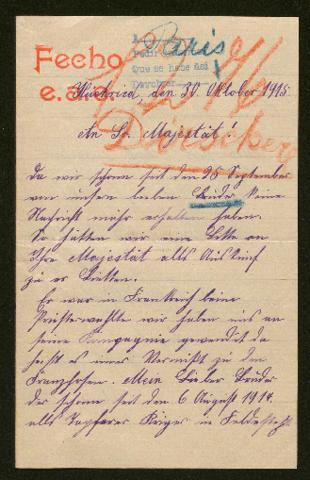 Fecho
e.a.s.
Paris
Que se haga así
den 30. Oktober 1915.
An Sr. Majestät!
Da wir schon seit den 25 September
von unsern lieben Bruder keine
Nachricht mehr erhalten haben.
So hätten wir eine Bitte an
Ihre Majestät alls Auskunf
zu er Bitten.
Er war in Frankreich beim
wir haben uns an
seine Kompagnie gewendet da
heist es immer Vermißt zu den
Franzhosen. Mein Lieber Bruder
der schonn seit den 6 August 1914.
alls Tapferer Kriger in Felde steht